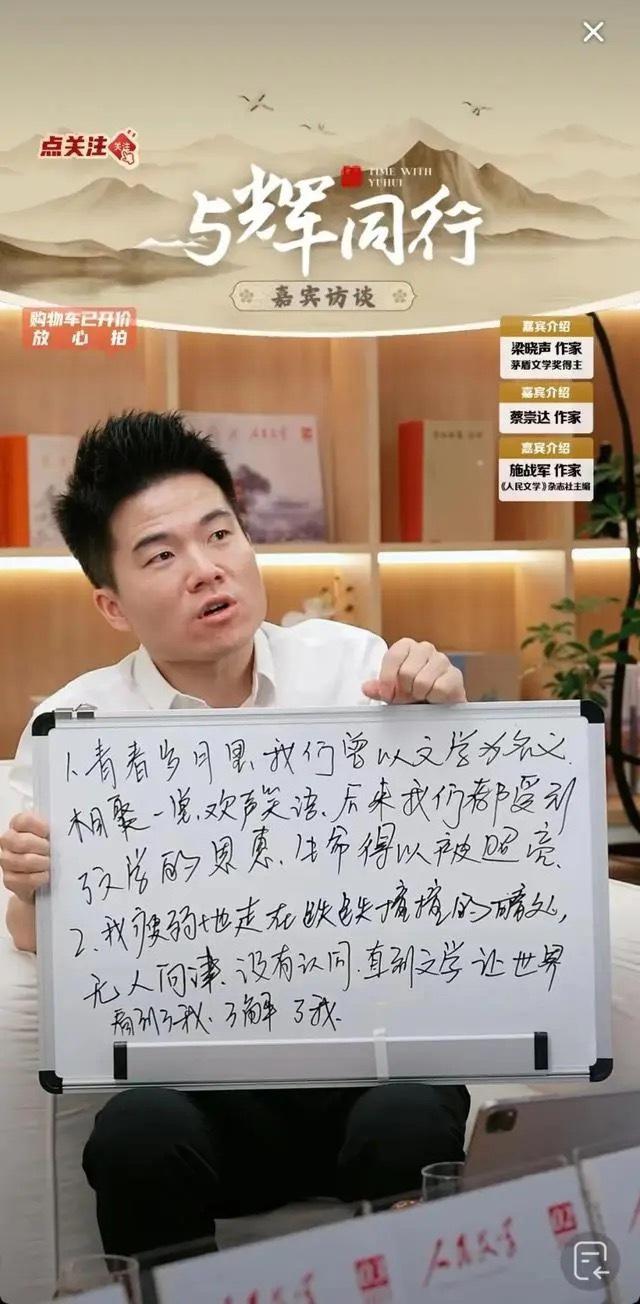 点关注
关注
TIME WITH
YUHUI
与辉同行
嘉宾访谈
购物车已开价
放心拍
嘉宾介绍
梁晓声 作家
茅盾文学奖得主
嘉宾介绍
蔡崇达 作家
嘉宾介绍
施战军 作家
《人民文学》杂志社主编
人民文学
1、青春岁月里、我们曾以文学为名义、
相聚一堂、欢声笑语、后来我们都受到
了文学的恩惠、生命得以被照亮、
2、我瘦弱地走在跌跌撞撞的暗处,
无人问津、没有认同、直到文学让世界
看到了我、了解了我、
人民文学